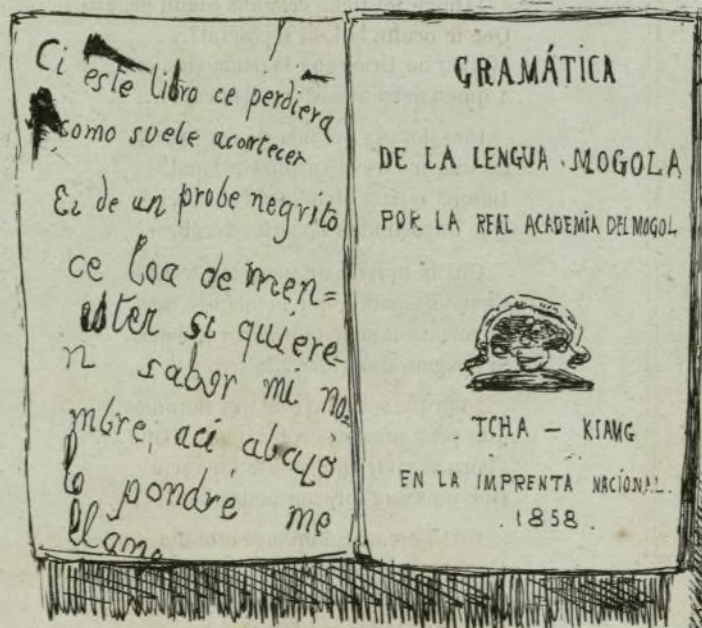 Ci este libro ce perdiera
como suele acontecer
Es de un probe negrito
ce loa de men=
ester si quiere-
n saber mi no=
mbre, aci abajo
lo pondré me
llamo
GRAMÁTICA
DE LA LENGUA MOGOLA
POR LA REAL ACADEMIA DEL MOGOL
TCHA — KIANG
EN LA IMPRENTA NACIONAL.
1858.